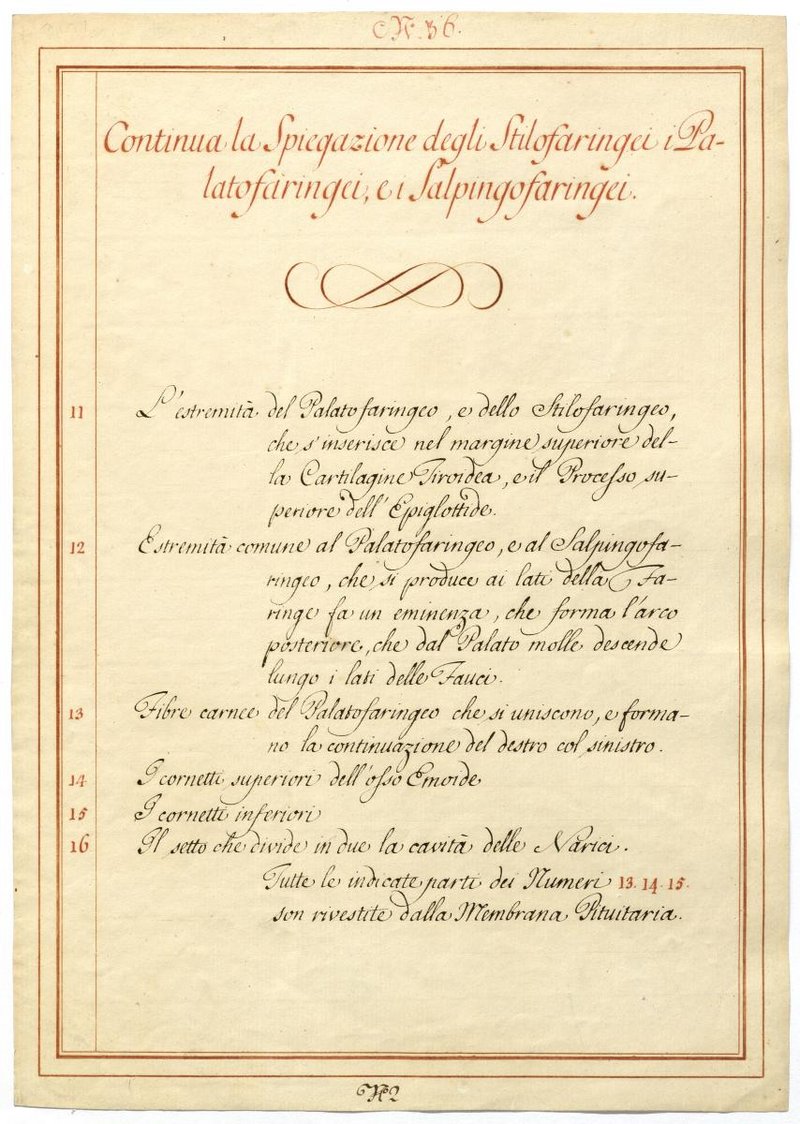 N. 36.
Continua la Spiegazione degli Stilofaringei i Pa-
latofaringei, e i Salpingofaringei.
11 L'estremità del Palatofaringeo, e dello Stilofaringeo,
che s'inserisce nel margine superiore del-
la Cartilagine Tiroidea, e il Processo su-
periore dell'Epiglottide.
12 Estremità comune al Palatofaringeo, e al Salpingofa-
ringeo, che si produce ai lati della Fa-
ringe fa un eminenza, che forma l'arco
posteriore, che dal Palato molle descende
lungo i lati delle Fauci.
13 Fibre carnee del Palatofaringeo che si uniscono, e forma-
no la continuazione del destro col sinistro.
14 I cornetti superiori dell'osso Emoide
15 I cornetti inferiori
16 Il setto che divide in due la cavità delle Narici.
Tutte le indicate parti dei Numeri 13. 14. 15.
son rivestite dalla Membrana Pituitaria.